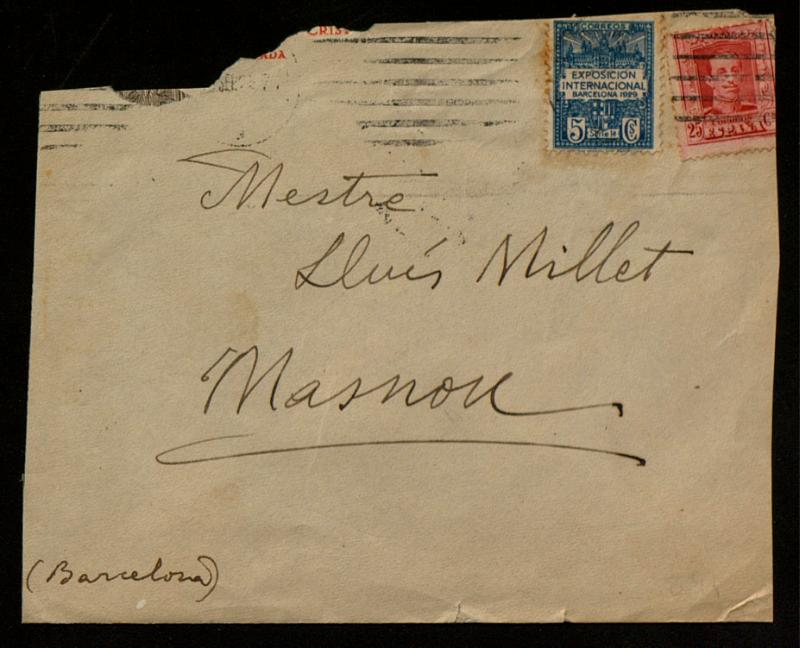 CORREOS
EXPOSICIÓN
INTERNACIONAL
BARCELONA 1929
5 Cs
25 ESPAÑA C
Mestre
Lluís Millet
Masnou
(Barcelona)